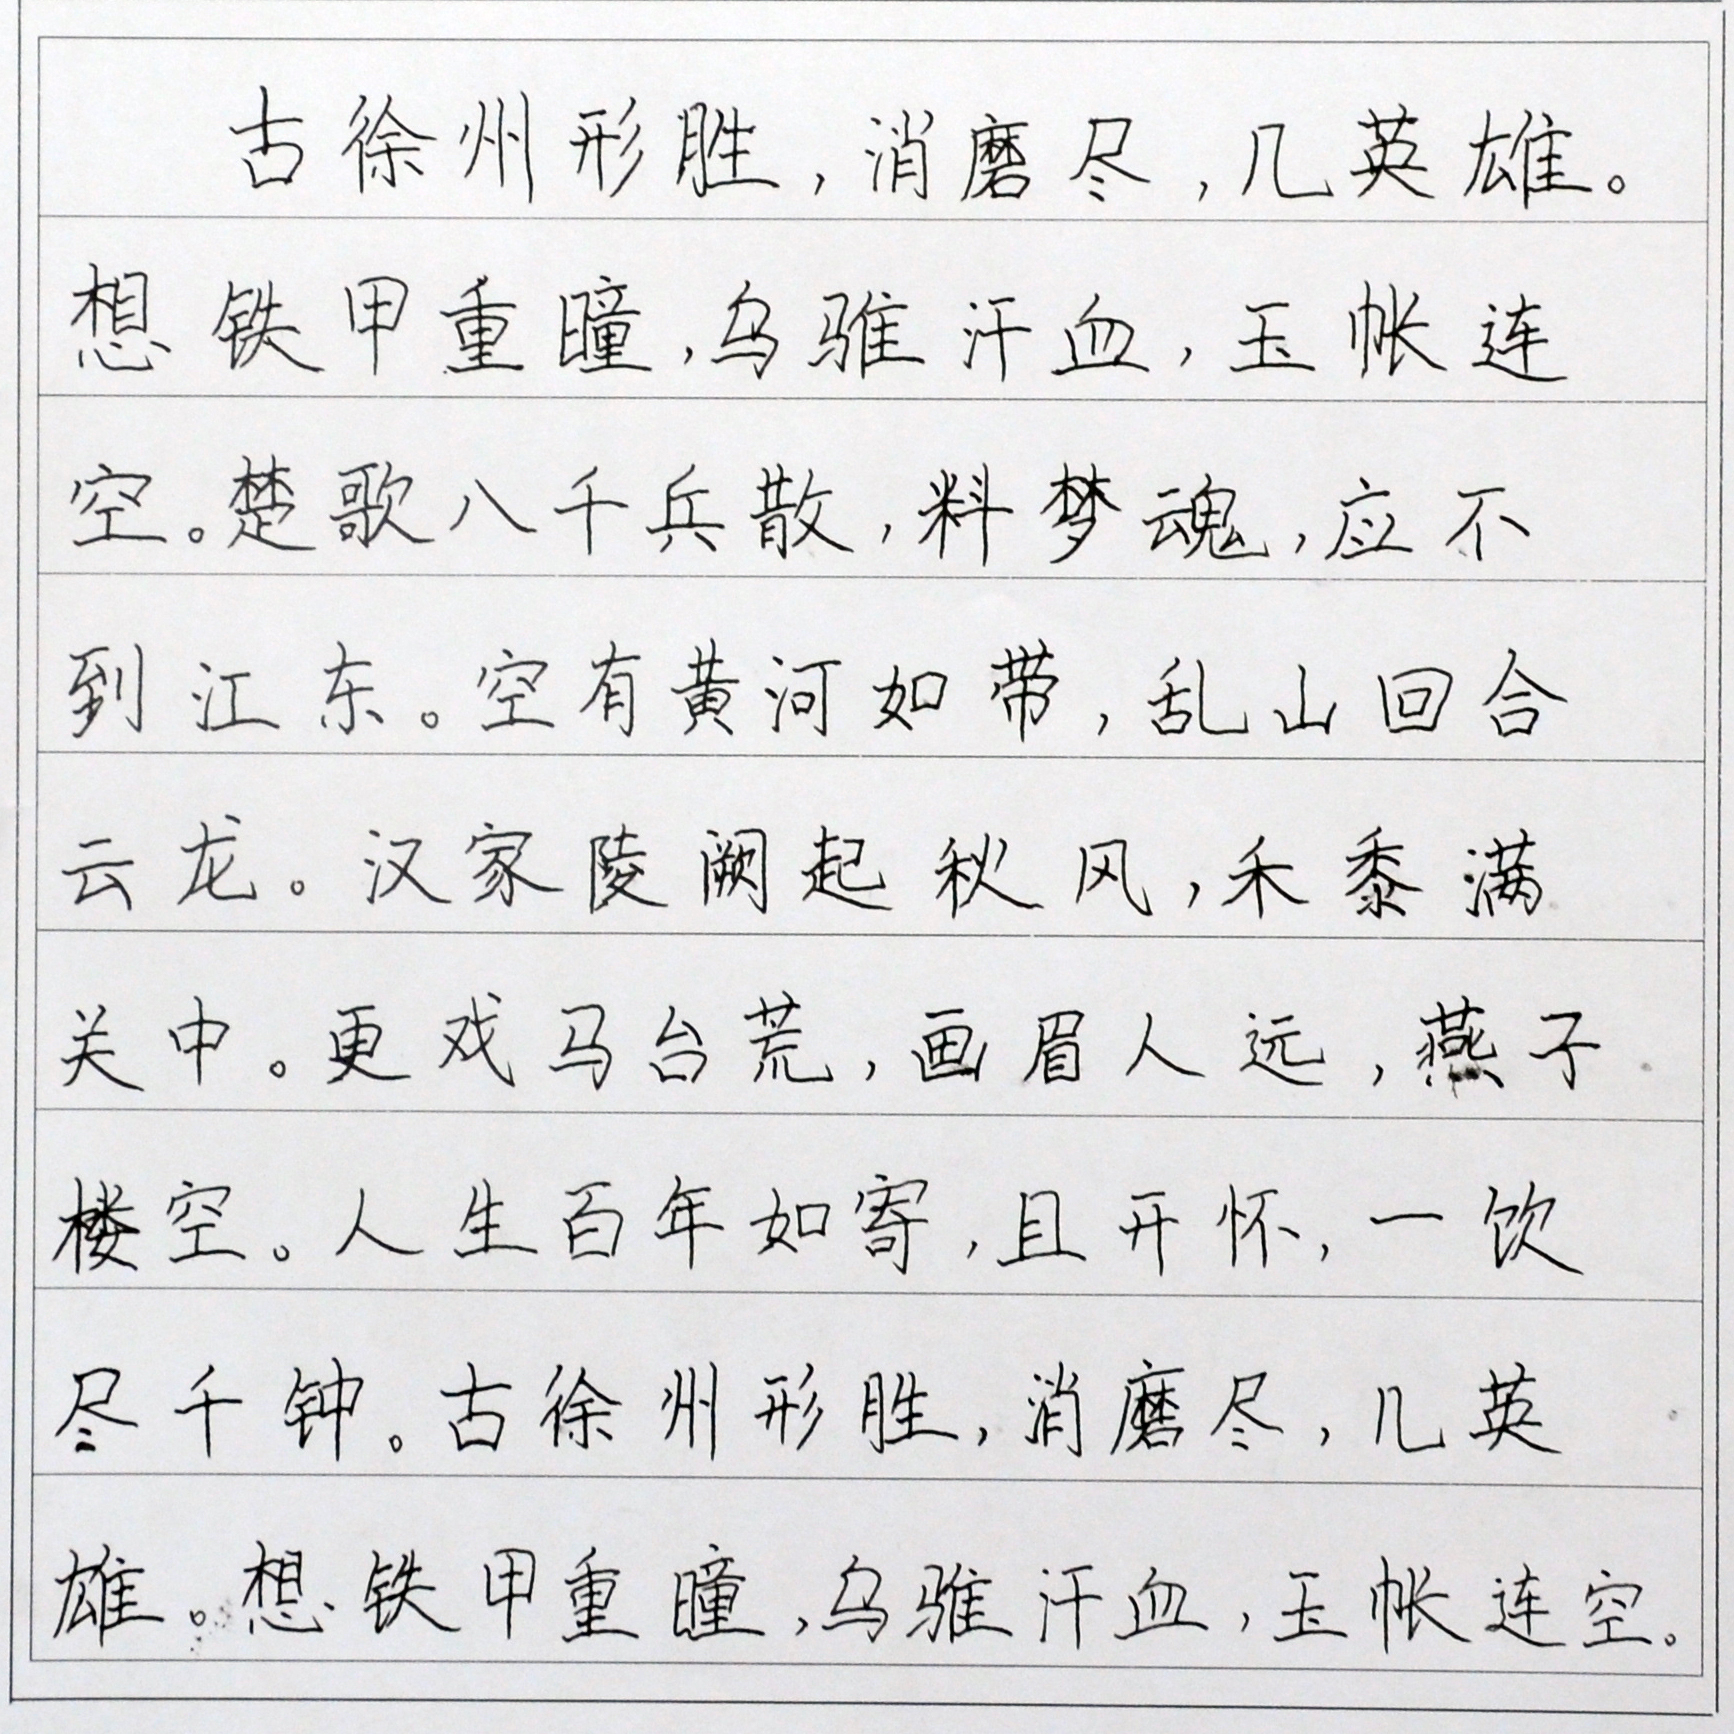 古徐州形胜，消磨尽，几英雄。
想铁甲重瞳，乌骓汗血，玉帐连
空。楚歌八千兵散，料梦魂，应不
到江东。空有黄河如带，乱山回合
云龙。汉家陵阙起秋风，禾黍满
关中。更戏马台荒，画眉人远，燕子
楼空。人生百年如寄，且开怀，一饮
尽千钟。古徐州形胜，消磨尽，几英
雄。想铁甲重瞳，乌骓汗血，玉帐连空。